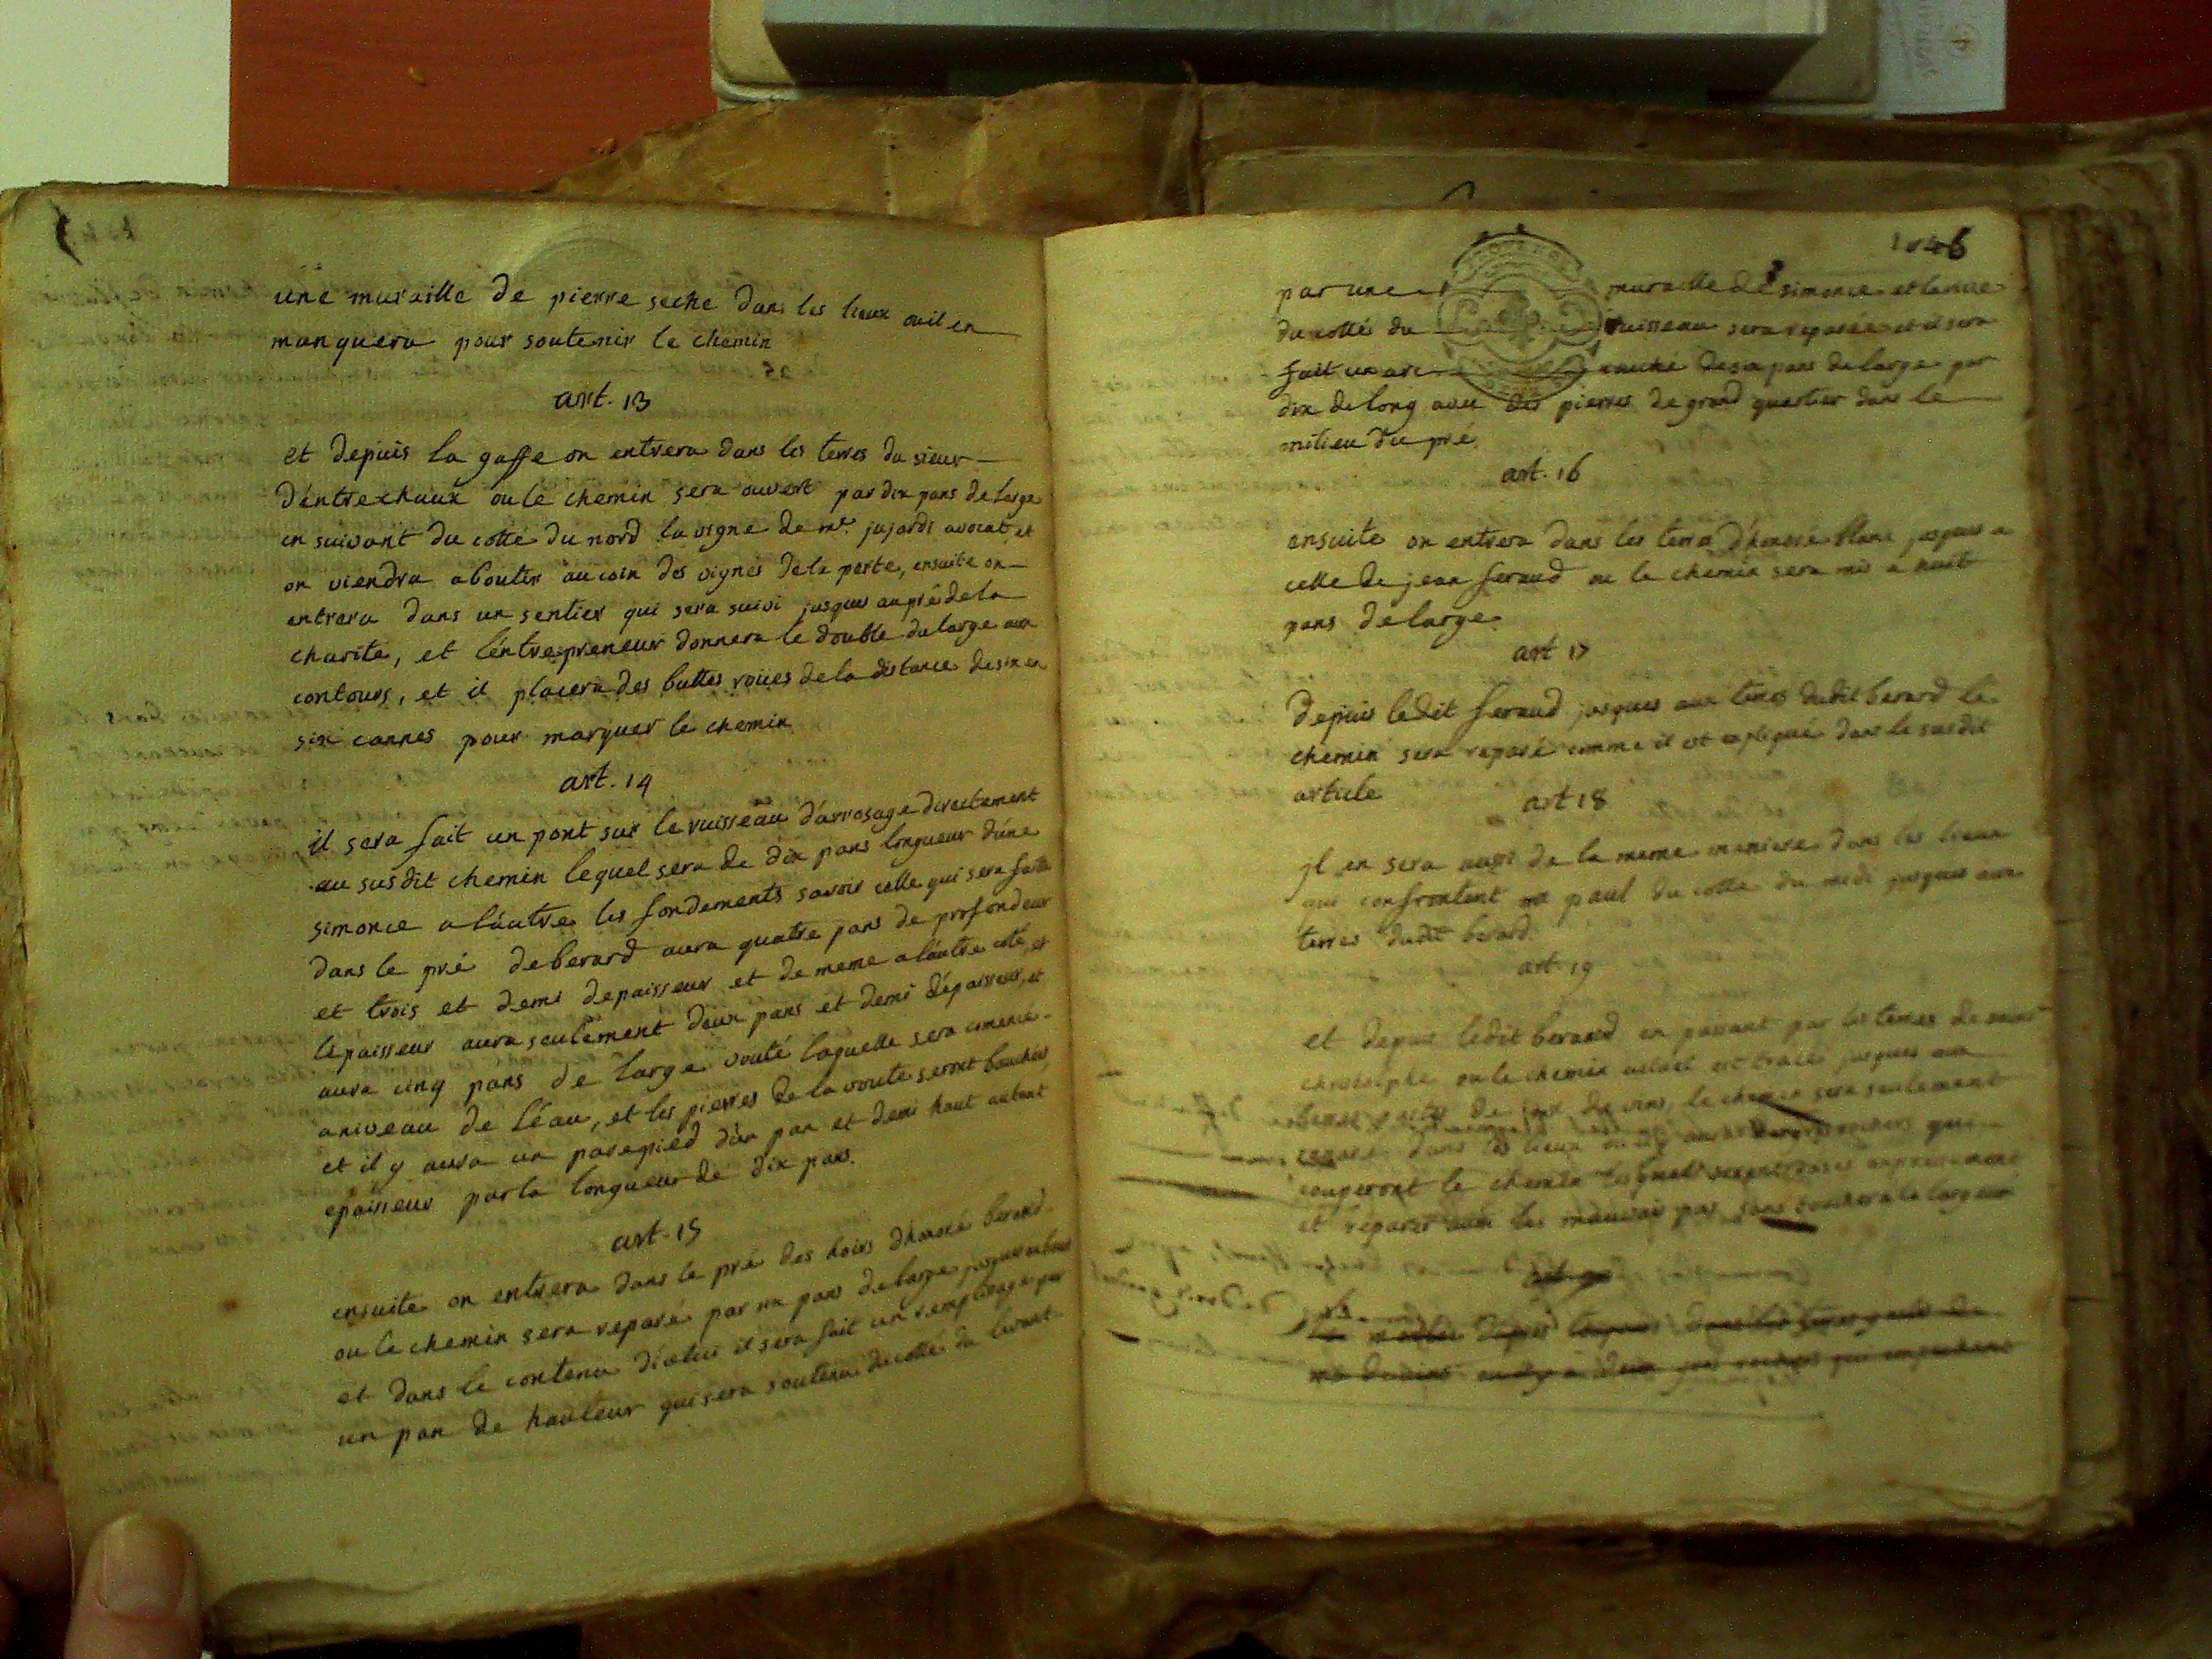 une muraille de pierre seche dans les lieux ou il en
manquera pour soutenir le chemin
art. 13
et depuis la gaffe on entrera dans les terres du sieur
d'entrechaux ou le chemin sera ouvert par dix pans de large
en suivant du cotté du nord la vigne de mr. jujardi avocat, et
on viendra aboutir au coin des vignes de la porte, ensuite on
entrera dans un sentier qui sera suivi jusques au pré de la
charite, et l'entrepreneur donnera le double du large aux
contours, et il placera des buttes roües de la distance de six en
six cannes pour marquer le chemin
art. 14
il sera fait un pont sur le ruisseau d'arrosage directement
au susdit chemin lequel sera de dix pans longueur d'une
simonce a l'autre les fondements savoir celle qui sera faite
dans le pré de berard aura quatre pans de profondeur
et trois et demi depaisseur et de meme a l'autre coté, et
lepaisseur aura seulement deux pans et demi dépaisseur, et
aura cinq pans de large vouté laquelle sera comencé
a niveau de léau, et les pierres de la voute seront bouchées
et il y aura un parepied d'un pan et demi haut autant
epaisseur par la longueur de dix pans.
art. 15
ensuite on entrera dans le pré des hoirs d'honoré berard
ou le chemin sera reparé par six pans de large jusques au bout
et dans le contenu d'icelui il sera fait un remplissage par
un pan de hauteur qui sera soutenu du cotté du levant
1046
par une muraille de simonce et la rive
du cotté du ruisseau sera reparée et il sera
fait un arc de six pans de large par
dix de long avec des pierres de grand quartier dans le
milieu du pré
art. 16
ensuite on entrera dans les terres d'honoré blanc jusques a
celle de jean feraud ou le chemin sera mis a huit
pans de large.
art 17
Depuis ledit feraud jusques aux terres dudit berard le
chemin sera reparé comme il est expliqué dans le susdit
article
art 18
il en sera aussi de la meme maniere dans les lieux
qui confrontent me paul du cotté du midi jusques aux
terres dudit berard.
art. 19
et depuis ledit berard en passant par les terres de
christophe ou le chemin actuel est tracé jusques aux
terres de de vins, le chemin sera seulement
reparé dans les lieux rochers qui
couperont le chemin lesquels seront
et reparer aux les mauvais pas sans toucher a la largeur